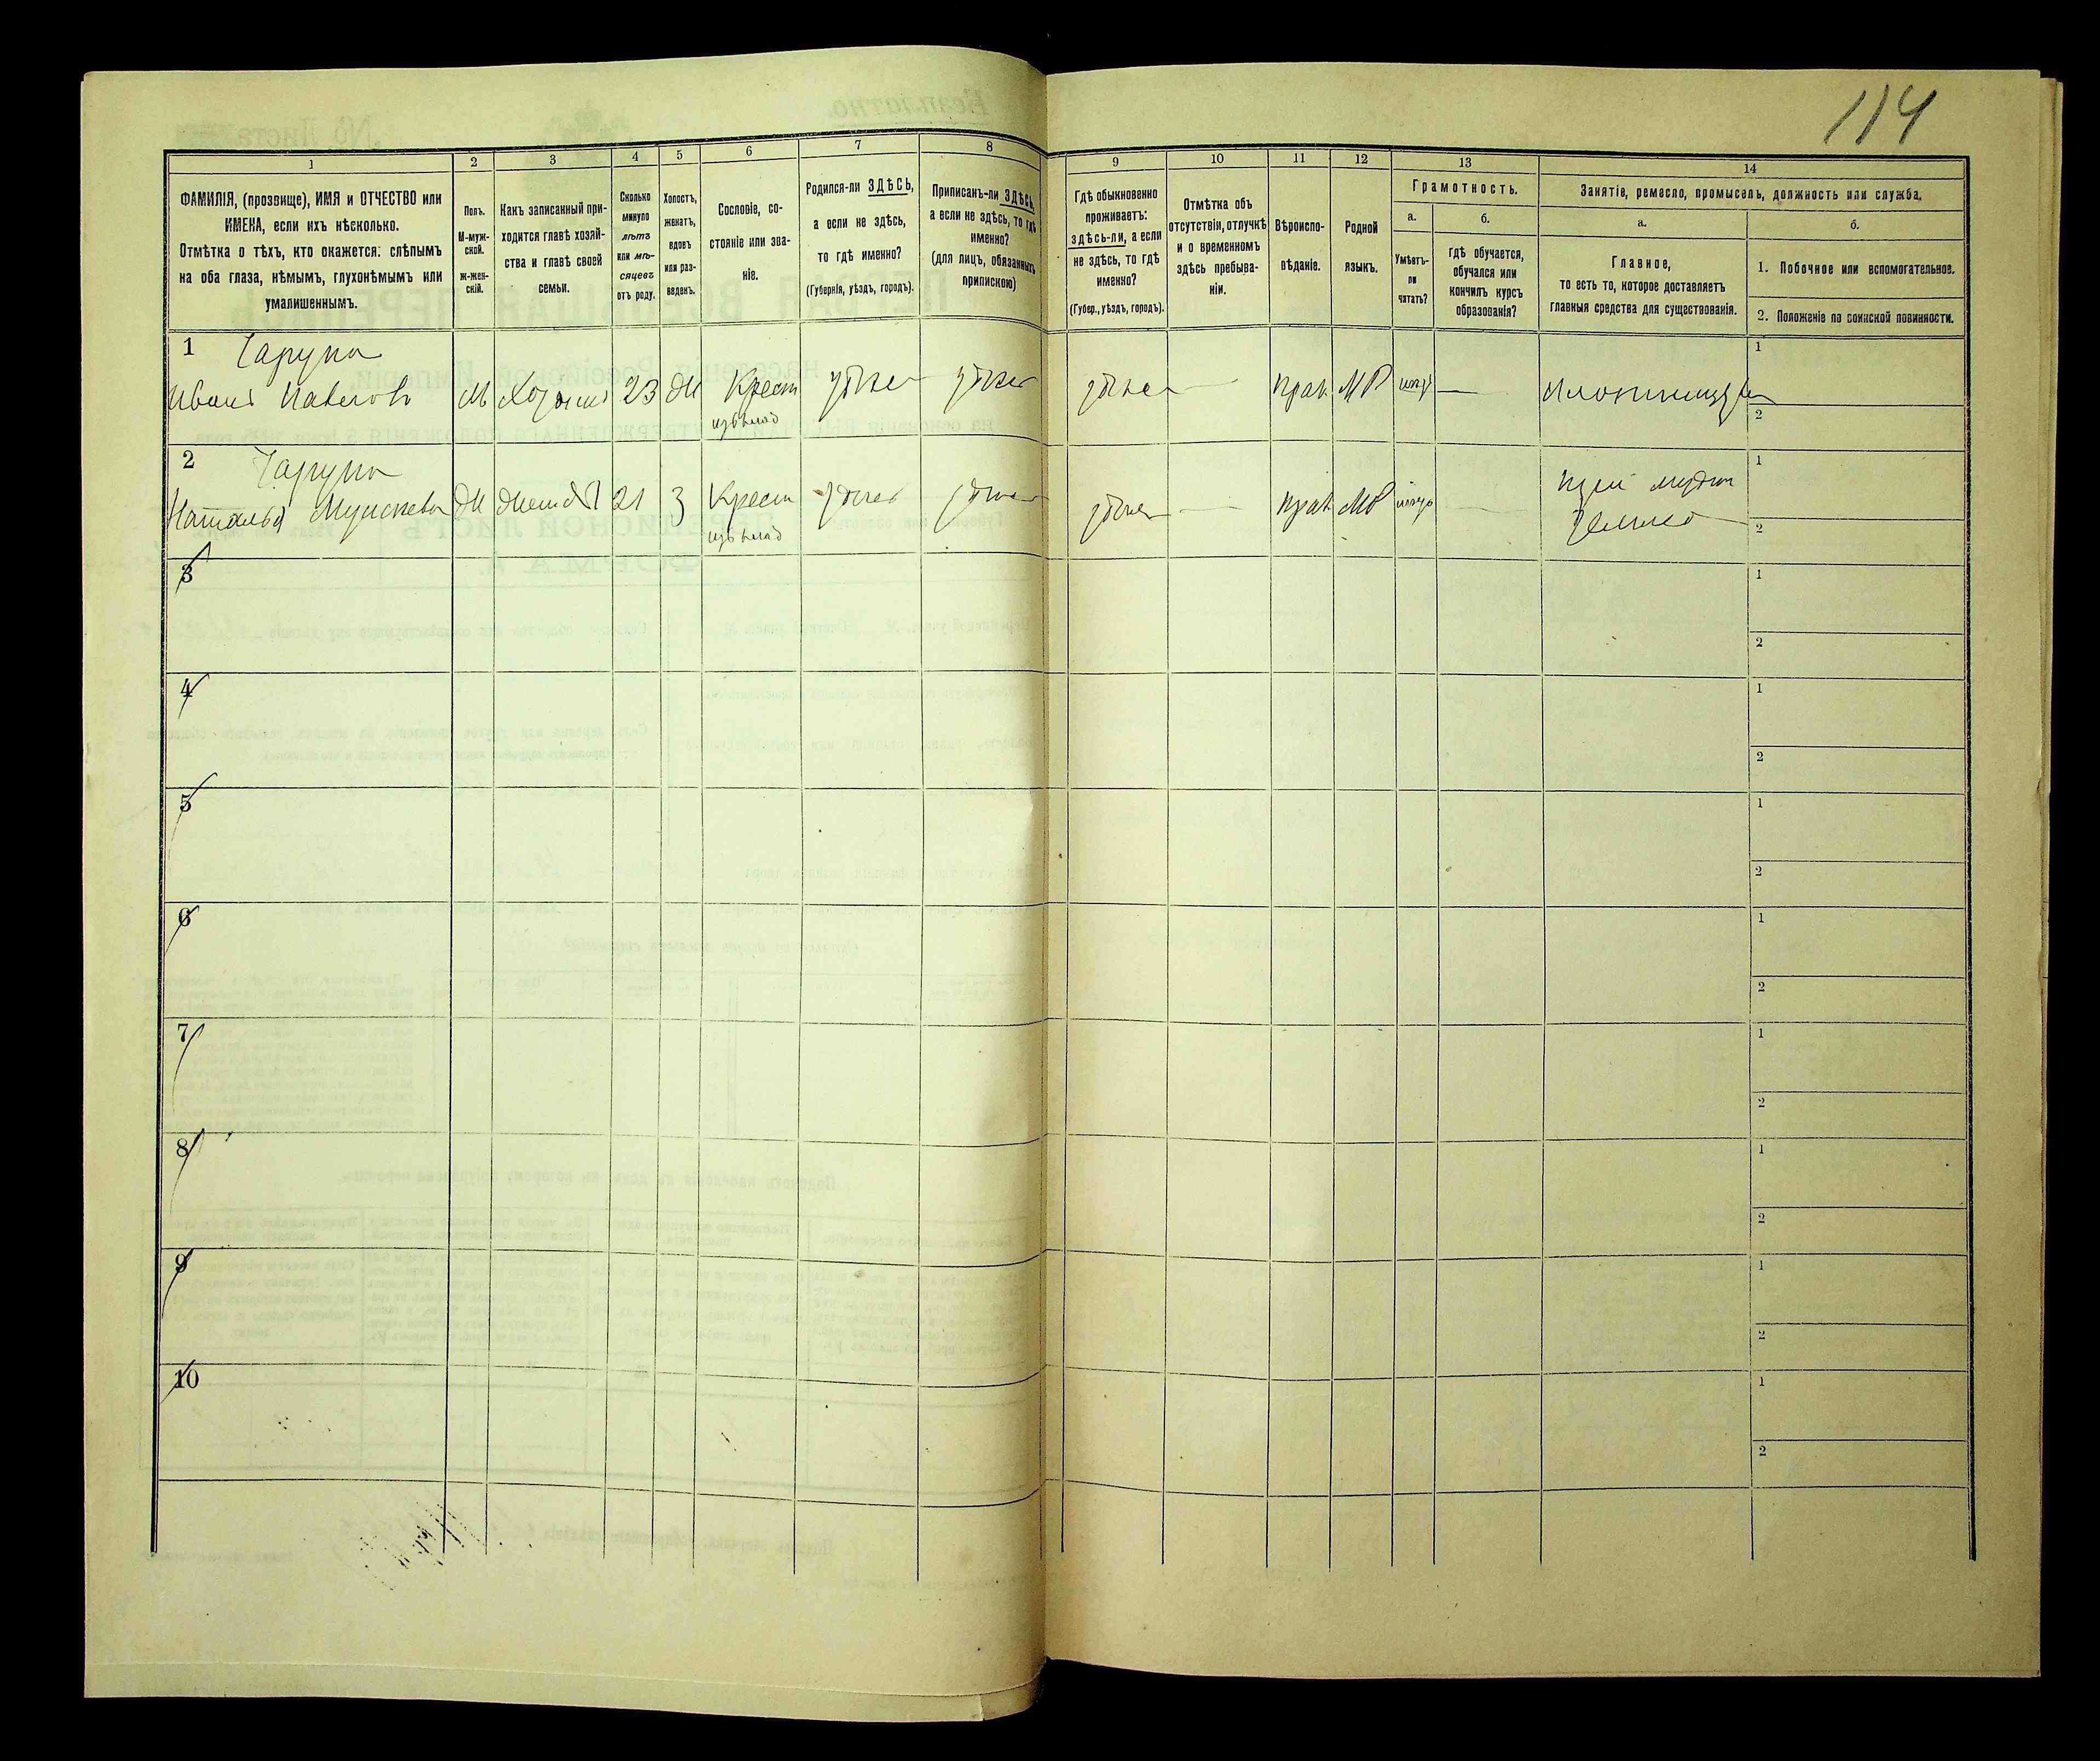 114
1
2
3
4
5
6
7
8
9
10
11
12
13
14
ФАМИЛІЯ, (прозвище), ИМЯ и ОТЧЕСТВО или
ИМЕНА, если ихъ нѣсколько.
Отмѣтка о тѣхъ, кто окажется: слѣпымъ
на оба глаза, нѣмымъ, глухонѣмымъ или
умалишеннымъ.
Полъ.
М-муж-
ской.
ж-жен-
скій.
Какъ записанный при-
ходится главѣ хозяй-
ства и главѣ своей
семьи.
Сколько
минуло
лѣтъ
или мѣ-
сяцевъ
отъ роду.
Холостъ,
женатъ,
вдовъ
или раз-
веденъ.
Сословіе, со-
стояніе или зва-
ніе.
Родился-ли ЗДѢСЬ,
а если не здѣсь,
то гдѣ именно?
(Губернія, уѣздъ, городъ).
Приписанъ-ли ЗДѢСЬ,
а если не здѣсь, то гдѣ
именно?
(для лицъ, обязанныхъ
припискою)
Гдѣ обыкновенно
проживаетъ:
здѣсь-ли, а если
не здѣсь, то гдѣ
именно?
(Губер., уѣздъ, городъ).
Отмѣтка объ
отсутствіи, отлучкѣ
и о временномъ
здѣсь пребыва-
ніи.
Вѣроиспо-
вѣданіе.
Родной
языкъ.
Грамотность.
а.
б.
Умѣетъ-
ли
читать?
Гдѣ обучается,
обучался или
кончилъ курсъ
образованія?
Занятіе, ремесло, промыселъ, должность или служба.
а.
б.
Главное,
то есть то, которое доставляетъ
главныя средства для существованія.
1. Побочное или вспомогательное.
2. Положеніе по воинской повинности.
1
Иванъ Павловъ М 23 Ж Крест прав МР
1
2
2
Наталья Ж 21 З Крест прав МР
1
2
3
1
2
4
1
2
5
1
2
6
1
2
7
1
2
8
1
2
9
1
2
10
1
2